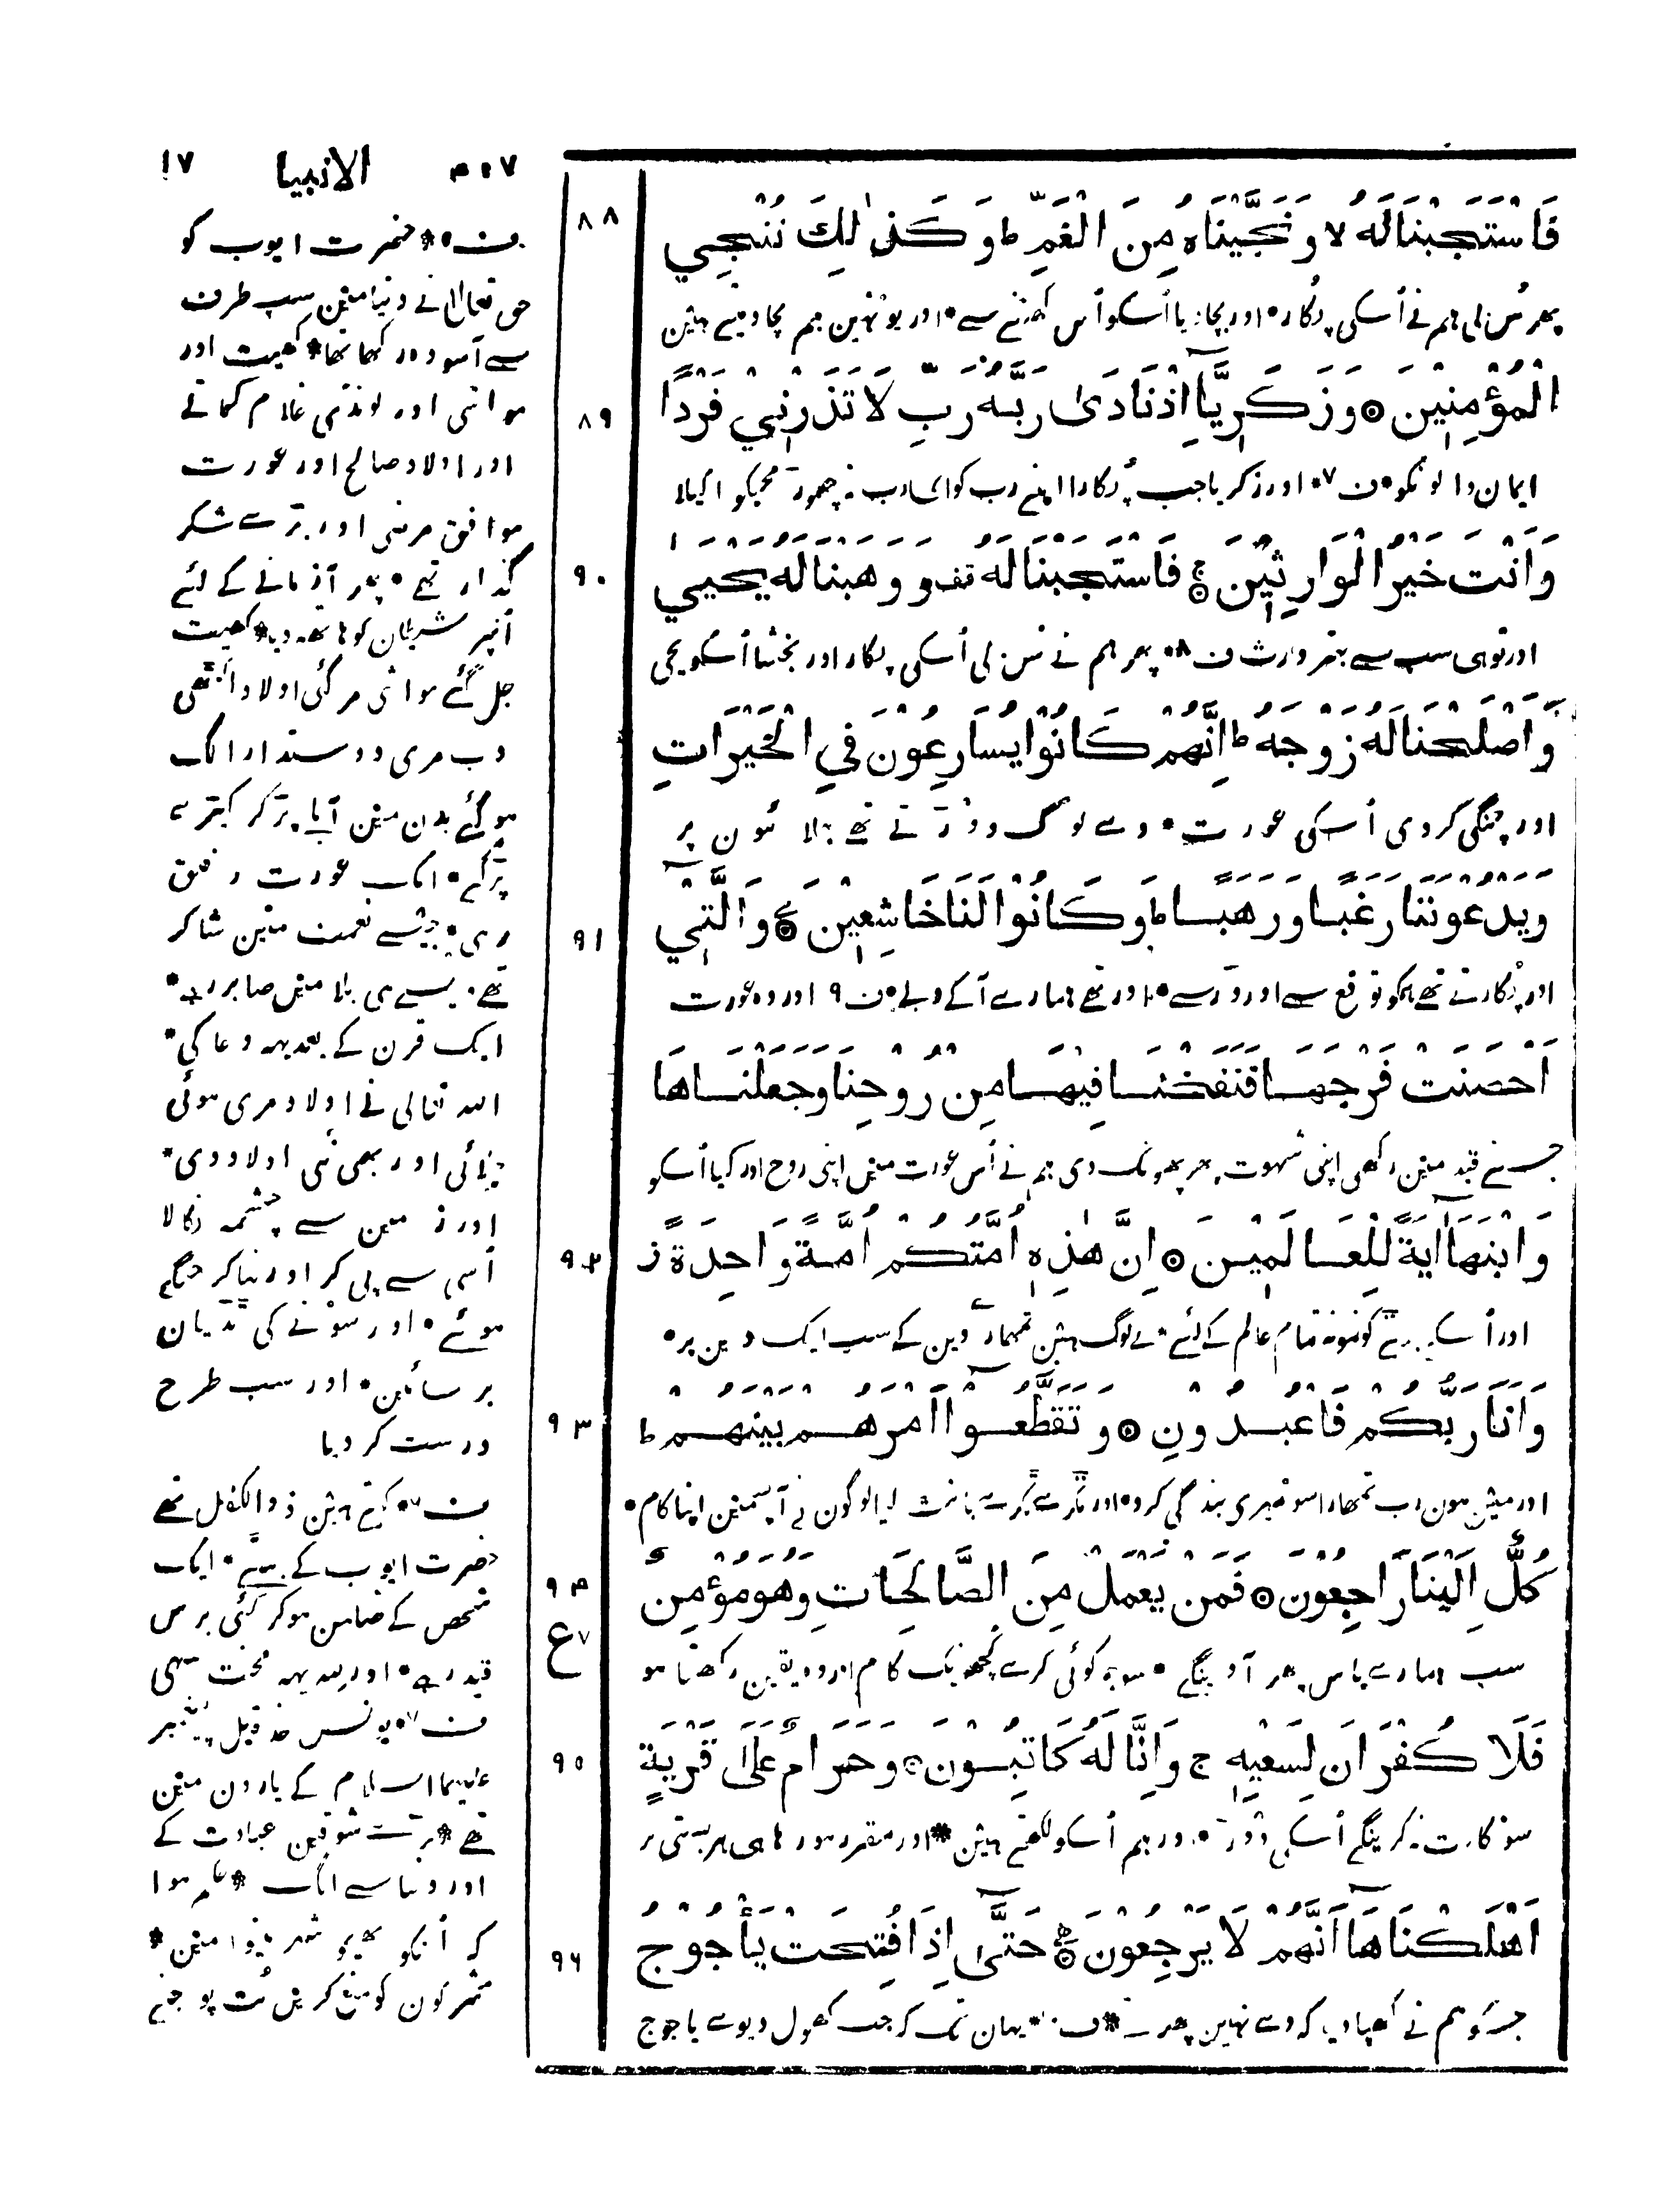 ١٧ الانبيا ٥٠٧
٨٨
فَاسْتَجَبْنَا لَهُ لا وَ نَجَّيْنَاهُ مِنَ الْغَمِّ ط وَ كَذٰلِكَ نُنْجِي
پھر سُن لی ہم نے اُسکی پُکار • اور بچا دیا اُسکو اُس گھٹنے سے • اور یونہین ہم بچا دیتے ہین
٨٩
الْمُؤْمِنِيْنَ ۝ وَ زَكَرِيَّآ اِذْ نَادَىٰ رَبَّهُ رَبِّ لَا تَذَرْنِيْ فَرْدًا
ایمان والونکو • ف ٧ • اور زکریا جب پُکارا اپنے رب کو ای رب نہ چھوڑ مجھکو اکیلا
٩٠
وَ اَنْتَ خَيْرُ الْوَارِثِيْنَ ۝ ج فَاسْتَجَبْنَا لَهُ تف و وَهَبْنَا لَهُ يَحْيٰي
اور توہی سب سے بہتر وارث ف ٨ • پھر ہم نے سُن لی اُسکی پکار اور بخشا اُسکو یحیی
وَ اَصْلَحْنَا لَهُ زَوْجَهُ ط اِنَّهُمْ كَانُوْا يُسَارِعُوْنَ فِي الْخَيْرَاتِ
اور چنگی کر دی اُسکی عورت • وے لوگ دوڑتے تھے بھلائیون پر
٩١
وَيَدْعُوْنَنَا رَغَبًا وَ رَهَبًا ط وَ كَانُوْا لَنَا خَاشِعِيْنَ ۝ وَ الَّتِيْ
اور پُکارتے تھے ہمکو توقع سے اور ڈر سے • اور تھے ہمارے آگے دبے • ف ٩ اور وہ عورت
اَحْصَنَتْ فَرْجَهَا فَنَفَخْنَا فِيْهَا مِنْ رُوْحِنَا وَجَعَلْنَاهَا
جسنے قید مین رکھی اپنی شہوت پھر پھونک دی ہم نے اُس عورت مین اپنی روح اور کیا اُسکو
٩٢
وَ ابْنَهَآ اٰيَةً لِلْعَالَمِيْنَ ۝ اِنَّ هٰذِهٖ اُمَّتُكُمْ اُمَّةً وَّاحِدَةً ز
اور اُسکے بیٹے کو نمونہ تمام عالم کے لئے • لے لوگ ہین تمہارے دین کے سب ایک دین پر •
٩٣
وَ اَنَا رَبُّكُمْ فَاعْبُدُوْنِ ۝ وَ تَقَطَّعُوْآ اَمْرَهُمْ بَيْنَهُمْ ط
اور مین ہون رب تمھارا سو میری بندگی کرو • اور ٹکرے ٹکرے بانٹ لیا لوگون نے آپسمین اپنا کام •
٩٤
كُلٌّ اِلَيْنَا رَاجِعُوْنَ ۝ فَمَنْ يَعْمَلْ مِنَ الصَّالِحَاتِ وَهُوَ مُؤْمِنٌ
ع ٧
سب ہمارے پاس پھر آوینگے • سو جو کوئی کرے کچھ نیک کام اور وہ یقین رکھتا ہو
٩٥
فَلَا كُفْرَانَ لِسَعْيِهٖ ج وَ اِنَّا لَهُ كَاتِبُوْنَ ۝ وَ حَرَامٌ عَلَىٰ قَرْيَةٍ
سو اکارت نہ کرینگے اُسکی دوڑ • اور ہم اُسکو لکھتے ہین * اور مقرر ہو رہا ہی ہر بستی پر
٩٦
اَهْلَكْنَاهَآ اَنَّهُمْ لَا يَرْجِعُوْنَ ۝ حَتَّىٰ اِذَا فُتِحَتْ يَأْجُوْجُ
جسکو ہم نے کھپا دیا کہ وے نہین پھرتے * ف ١٠ * یہان تک کہ جب کھول دیوے یاجوج
ف ٥ * حضرت ایوب کو
حق تعالیٰ نے دنیا مین سب طرف
سے آسودہ رکھا تھا * کھیت اور
مواشی اور لونڈی غلام کماتے
اور اولاد صالح اور عورت
موافق مرضی اور بڑے شکر
گذار تھے • پھر آزمانے کے لئے
اُنپر شیطان کو ہاتھ دیا * کھیت
جل گئے مواشی مر گئی اولاد اکٹھی
دب مری دوستدار الگ
ہو گئے بدن مین آبلہ پڑ کر کیڑے
پڑ گئے • ایک عورت رفیق
رہی • جیسے نعمت مین شاکر
تھے • یسے ہی بلا مین صابر رہے •
ایک قرن کے بعد یہہ دعا کی *
اللہ تعالی نے اولاد مری ہوئی
جِلائی اور بھی نئی اولاد دی *
اور زمین سے چشمہ نکالا
اُسی سے پی کر اور نہا کر چنگے
ہوئے • اور سونے کی ٹڈیان
برسائین • اور سب طرح
درست کر دیا
ف ٦ • کہتے ہین ذوالکفل تھے
حضرت ایوب کے بیٹے • ایک
شخص کے ضامن ہو کر کئی برس
قید رہے • اور للہ یہہ محنت سہی
ف ٧ • یونس حزقیل پیغمبر
علیہما السلام کے یارون مین
تھے * بڑے شوقین عبادت کے
اور دنیا سے الگ * حکم ہوا
کہ اُنکو بھیجو شہر نینوا مین *
مشرکون کو منع کرین بُت پوجنے